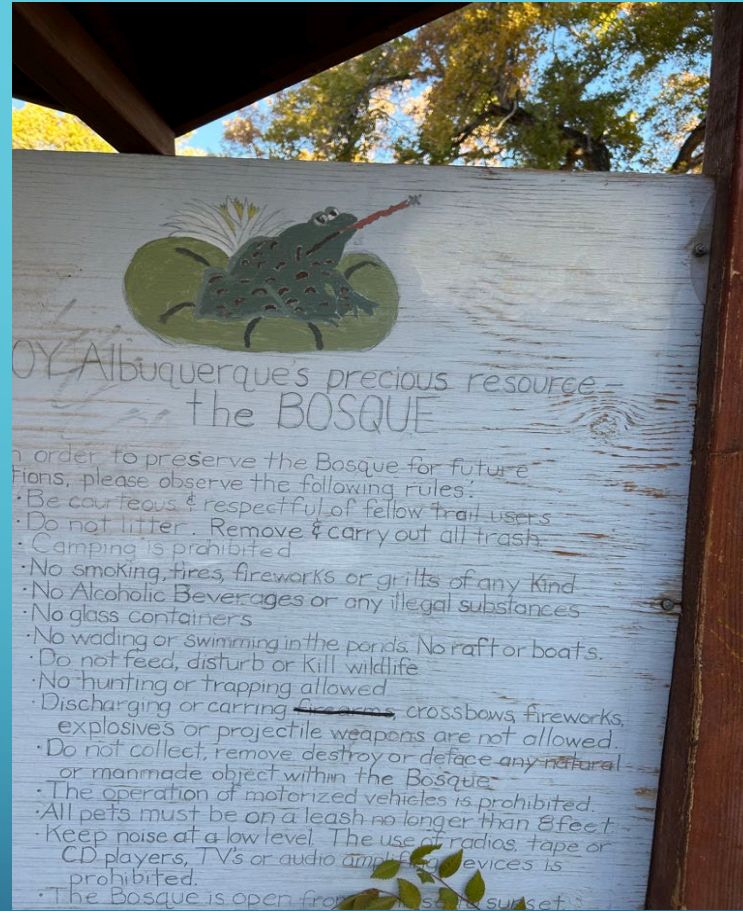 OY Albuquerque's precious resource –
the BOSQUE
n order to preserve the Bosque for future
tions, please observe the following rules:
• Be courteous & respectful of fellow trail users
• Do not litter. Remove & carry out all trash.
Camping is prohibited
• No smoking, fires, fireworks or grills of any kind
• No Alcoholic Beverages or any illegal substances
• No glass containers
• No wading or swimming in the ponds. No raft or boats.
• Do not feed, disturb or kill wildlife
• No hunting or trapping allowed
• Discharging or carring firearms, crossbows, fireworks,
explosives or projectile weapons are not allowed.
• Do not collect, remove, destroy or deface any natural
or manmade object within the Bosque
• The operation of motorized vehicles is prohibited.
• All pets must be on a leash no longer than 8 feet.
• Keep noise at a low level. The use of radios, tape or
CD players, TV's or audio devices is
prohibited.
• The Bosque is open from sunset